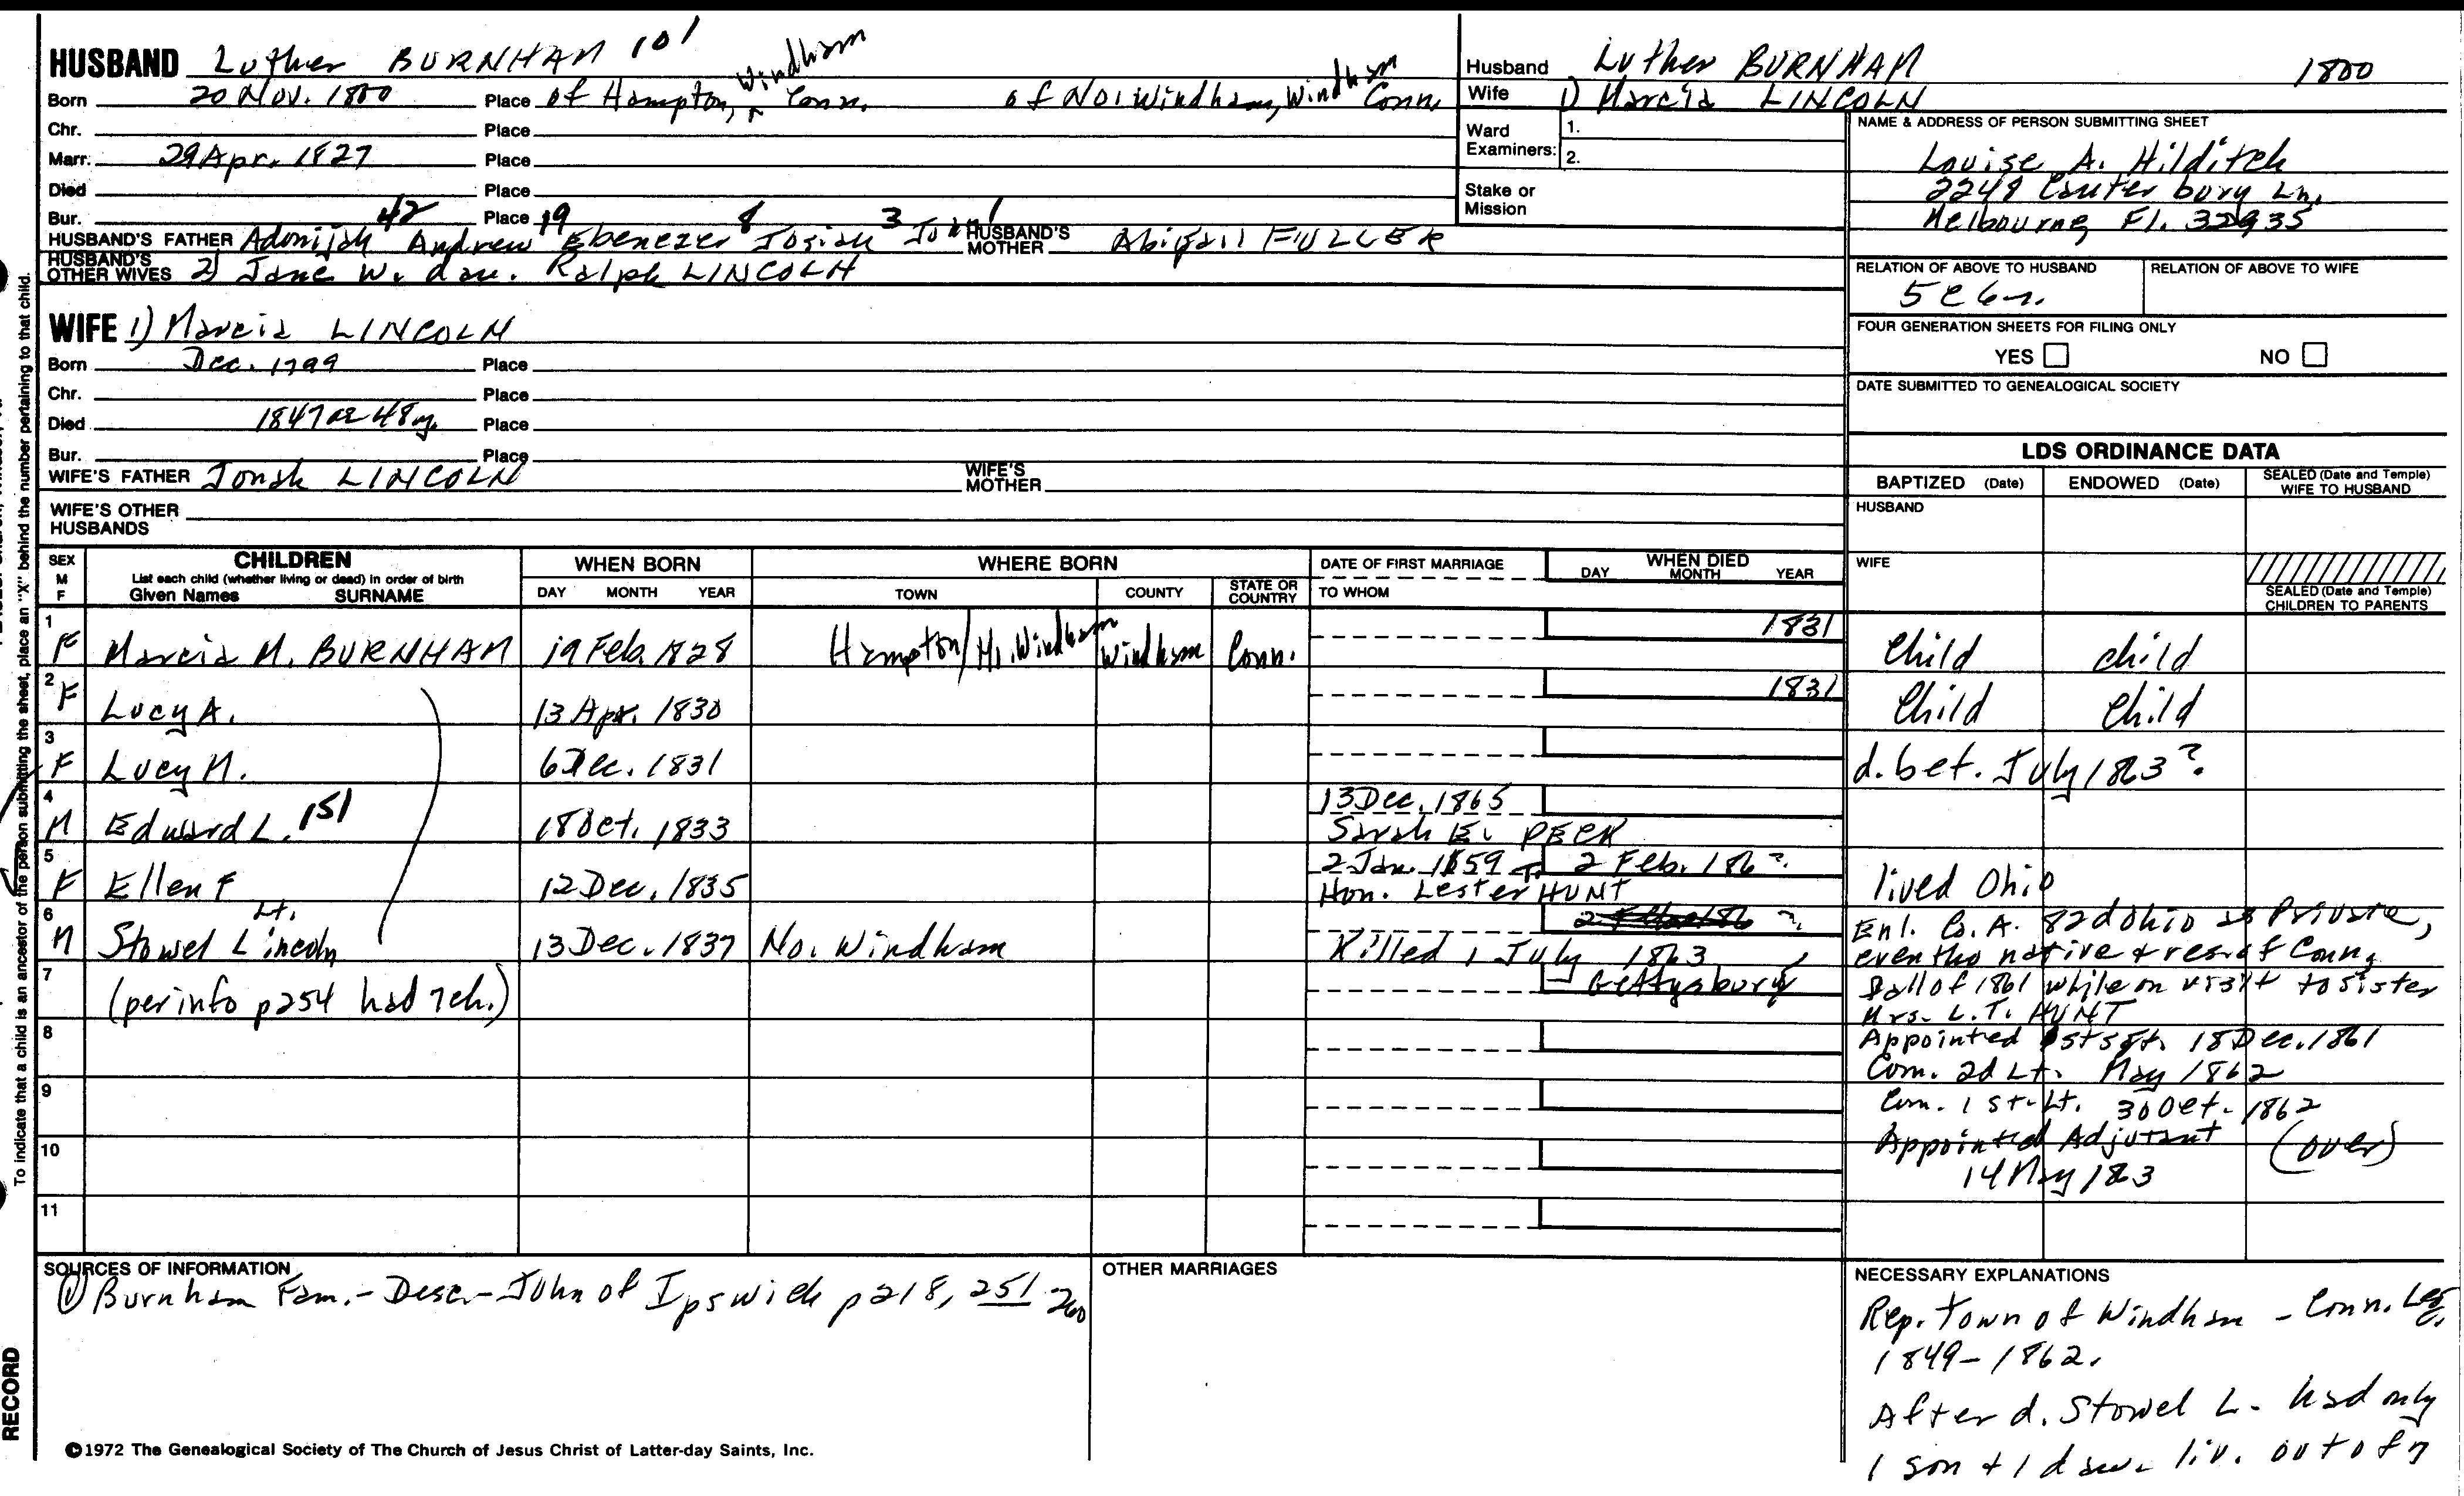 HUSBAND Luther BURNHAM 101
Born 20 Nov. 1800 Place of Hampton, Windham Conn. of No. Windham, Windham Conn.
Chr. Place
Marr. 29 Apr. 1827 Place
Died Place
Bur. Place
42 19 8 3 1
HUSBAND'S FATHER Adonijah Andrew Ebenezer Josiah John HUSBAND'S MOTHER Abigail FULLER
HUSBAND'S OTHER WIVES 2) Jane W. dau. Ralph LINCOLN
WIFE 1) Marcia LINCOLN
Born Dec. 1799 Place
Chr. Place
Died 1847 or 48 Place
Bur. Place
WIFE'S FATHER Jonah LINCOLN WIFE'S MOTHER
WIFE'S OTHER HUSBANDS
Husband Luther BURNHAM 1800
Wife 1) Marcia LINCOLN
Ward Examiners: 1.
2.
Stake or Mission
NAME & ADDRESS OF PERSON SUBMITTING SHEET
Louise A. Hilditch
2249 Canterbury Ln.
Melbourne Fl. 32935
RELATION OF ABOVE TO HUSBAND RELATION OF ABOVE TO WIFE
FOUR GENERATION SHEETS FOR FILING ONLY
YES NO
DATE SUBMITTED TO GENEALOGICAL SOCIETY
LDS ORDINANCE DATA
BAPTIZED (Date) ENDOWED (Date) SEALED (Date and Temple) WIFE TO HUSBAND
HUSBAND
WIFE
SEALED (Date and Temple) CHILDREN TO PARENTS
SEX M F
CHILDREN
List each child (whether living or dead) in order of birth
Given Names SURNAME
WHEN BORN
DAY MONTH YEAR
WHERE BORN
TOWN COUNTY STATE OR COUNTRY
DATE OF FIRST MARRIAGE
TO WHOM
WHEN DIED
DAY MONTH YEAR
1 F Marcia M. BURNHAM 19 Feb. 1828 Hampton/N. Windham Windham Conn. 1831 Child child
2 F Lucy A. 13 Apr. 1830 1831 Child Child
3 F Lucy M. 6 Dec. 1831 d. bet. July 1863?
4 M Edward L. 151 18 Oct. 1833 13 Dec. 1865
Sarah E. PECK
5 F Ellen F 12 Dec. 1835 2 Jan. 1859 2 Feb. 186?
Hon. Lester T. HUNT lived Ohio
6 M Lt. Stowel Lincoln 13 Dec. 1837 No. Windham Killed 1 July 1863
Gettysburg
7 (per info p254 had 7ch.)
8
9
10
11
Enl. Co. A. 82d Ohio as Private,
even tho native & res. of Conn,
Fall of 1861 while on visit to sister
Mrs. L.T. HUNT
Appointed 1st Sgt. 18 Dec. 1861
Com. 2d Lt. May 1862
Com. 1st Lt. 30 Oct. 1862
Appointed Adjutant (over)
14 May 1863
SOURCES OF INFORMATION
① Burnham Fam.- Desc- John of Ipswich p 218, 251 260
OTHER MARRIAGES
NECESSARY EXPLANATIONS
Rep. Town of Windham - Conn. Leg.
1849-1862.
After d. Stowel L. had only
1 son & 1 dau. liv. out of 7
©1972 The Genealogical Society of The Church of Jesus Christ of Latter-day Saints, Inc.
To indicate that a child is an ancestor of the person submitting the sheet, place an "X" behind the number pertaining to that child.
RECORD